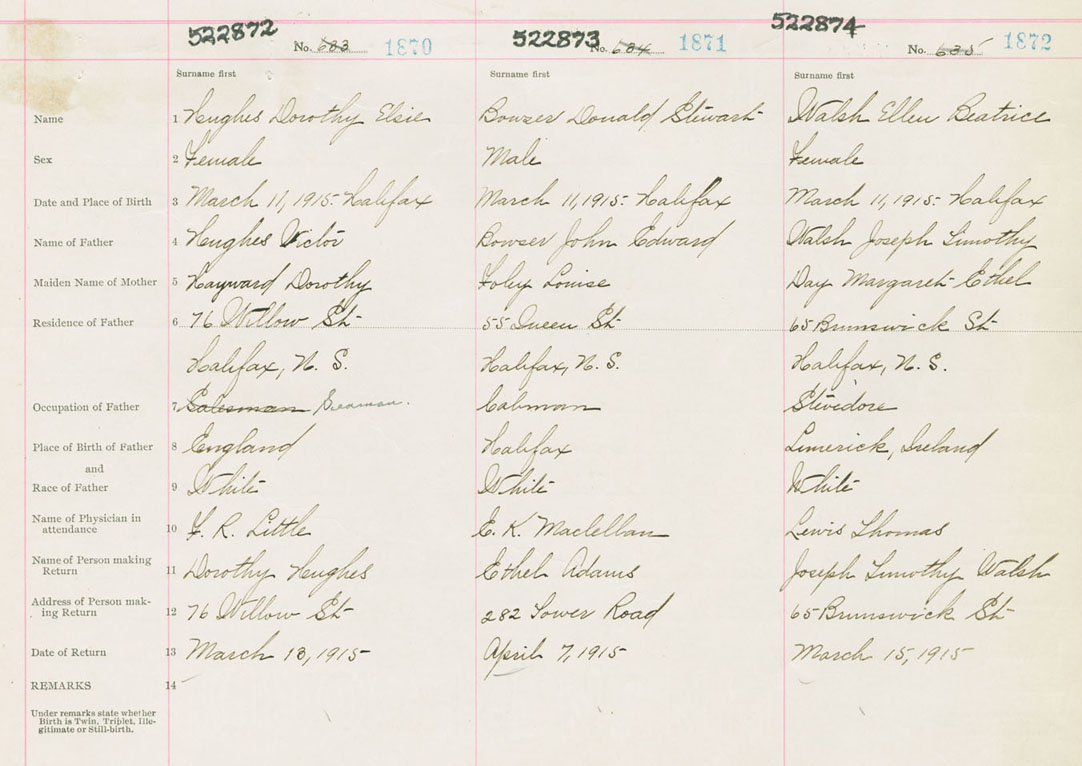 522872 522873 522874
No. 633 1870 No. 634 1871 No. 635 1872
Surname first Surname first Surname first
Name 1 Hughes Dorothy Elsie Bowser Donald Stewart Walsh Ellen Beatrice
Sex 2 Female Male Female
Date and Place of Birth 3 March 11, 1915 - Halifax March 11, 1915 - Halifax March 11, 1915 - Halifax
Name of Father 4 Hughes Victor Bowser John Edward Walsh Joseph Timothy
Maiden Name of Mother 5 Hayward Dorothy Foley Louise Day Margaret Ethel
Residence of Father 6 76 Willow St 55 Queen St 65 Brunswick St
Halifax, N. S. Halifax, N. S. Halifax, N. S.
Occupation of Father 7 Salesman Seaman. Cabman Stevedore
Place of Birth of Father 8 England Halifax Limerick, Ireland
and
Race of Father 9 White White White
Name of Physician in
attendance 10 F. R. Little E. K. Maclellan Lewis Thomas
Name of Person making
Return 11 Dorothy Hughes Ethel Adams Joseph Timothy Walsh
Address of Person mak-
ing Return 12 76 Willow St 282 Tower Road 65 Brunswick St
Date of Return 13 March 13, 1915 April 7, 1915 March 15, 1915
REMARKS 14
Under remarks state whether
Birth is Twin, Triplet, Ille-
gitimate or Still-birth.